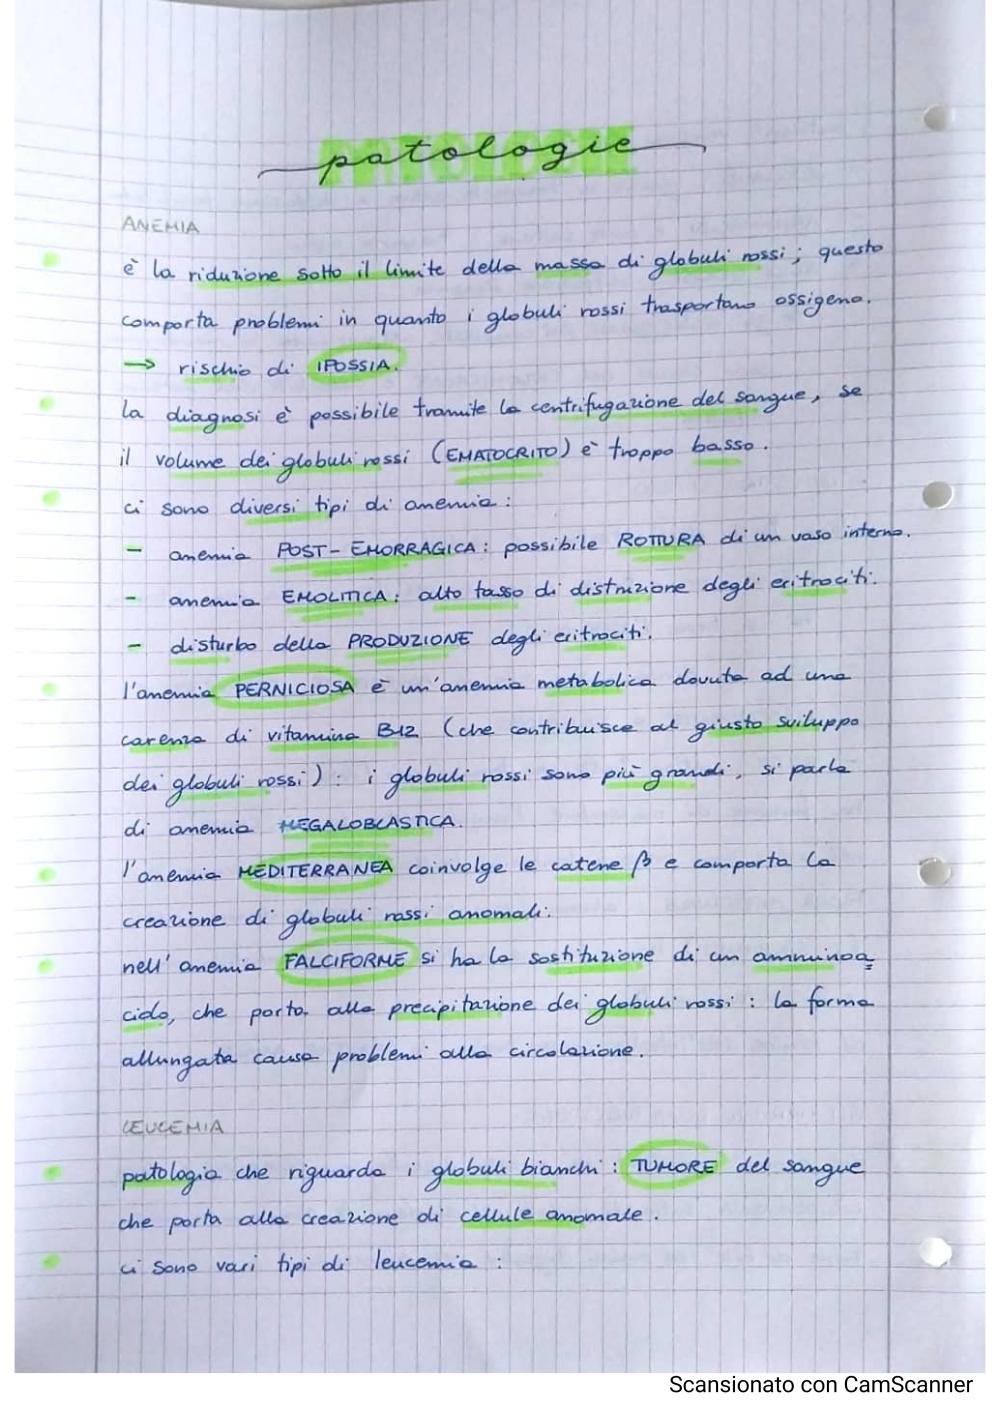 patologie
ANEMIA
è la riduzione sotto il limite della massa di globuli rossi; questo
comporta problemi in quanto i globuli rossi trasportano ossigeno.
→ rischio di IPOSSIA.
la diagnosi è possibile tramite la centrifugazione del sangue, se
il volume dei globuli rossi (EMATOCRITO) è troppo basso.
ci sono diversi tipi di anemia:
- anemia POST-EMORRAGICA: possibile ROTTURA di un vaso interno.
- anemia EMOLITICA: alto tasso di distruzione degli eritrociti.
- disturbo della PRODUZIONE degli eritrociti.
l'anemia PERNICIOSA è un'anemia metabolica dovuta ad una
carenza di vitamina B12 (che contribuisce al giusto sviluppo
dei globuli rossi): i globuli rossi sono più grandi, si parla
di anemia MEGALOBLASTICA.
l'anemia MEDITERRANEA coinvolge le catene β e comporta la
creazione di globuli rossi anomali.
nell'anemia FALCIFORME si ha la sostituzione di un amminoa=
cido, che porta alla precipitazione dei globuli rossi: la forma
allungata causa problemi alla circolazione.
LEUCEMIA
patologia che riguarda i globuli bianchi: TUMORE del sangue
che porta alla creazione di cellule anomale.
ci sono vari tipi di leucemia:
Scansionato con CamScanner